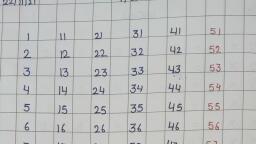 1 11 21 31 41 51
2 12 22 32 42 52
3 13 23 33 43 53
4 14 24 34 44 54
5 15 25 35 45 55
6 16 26 36 46 56